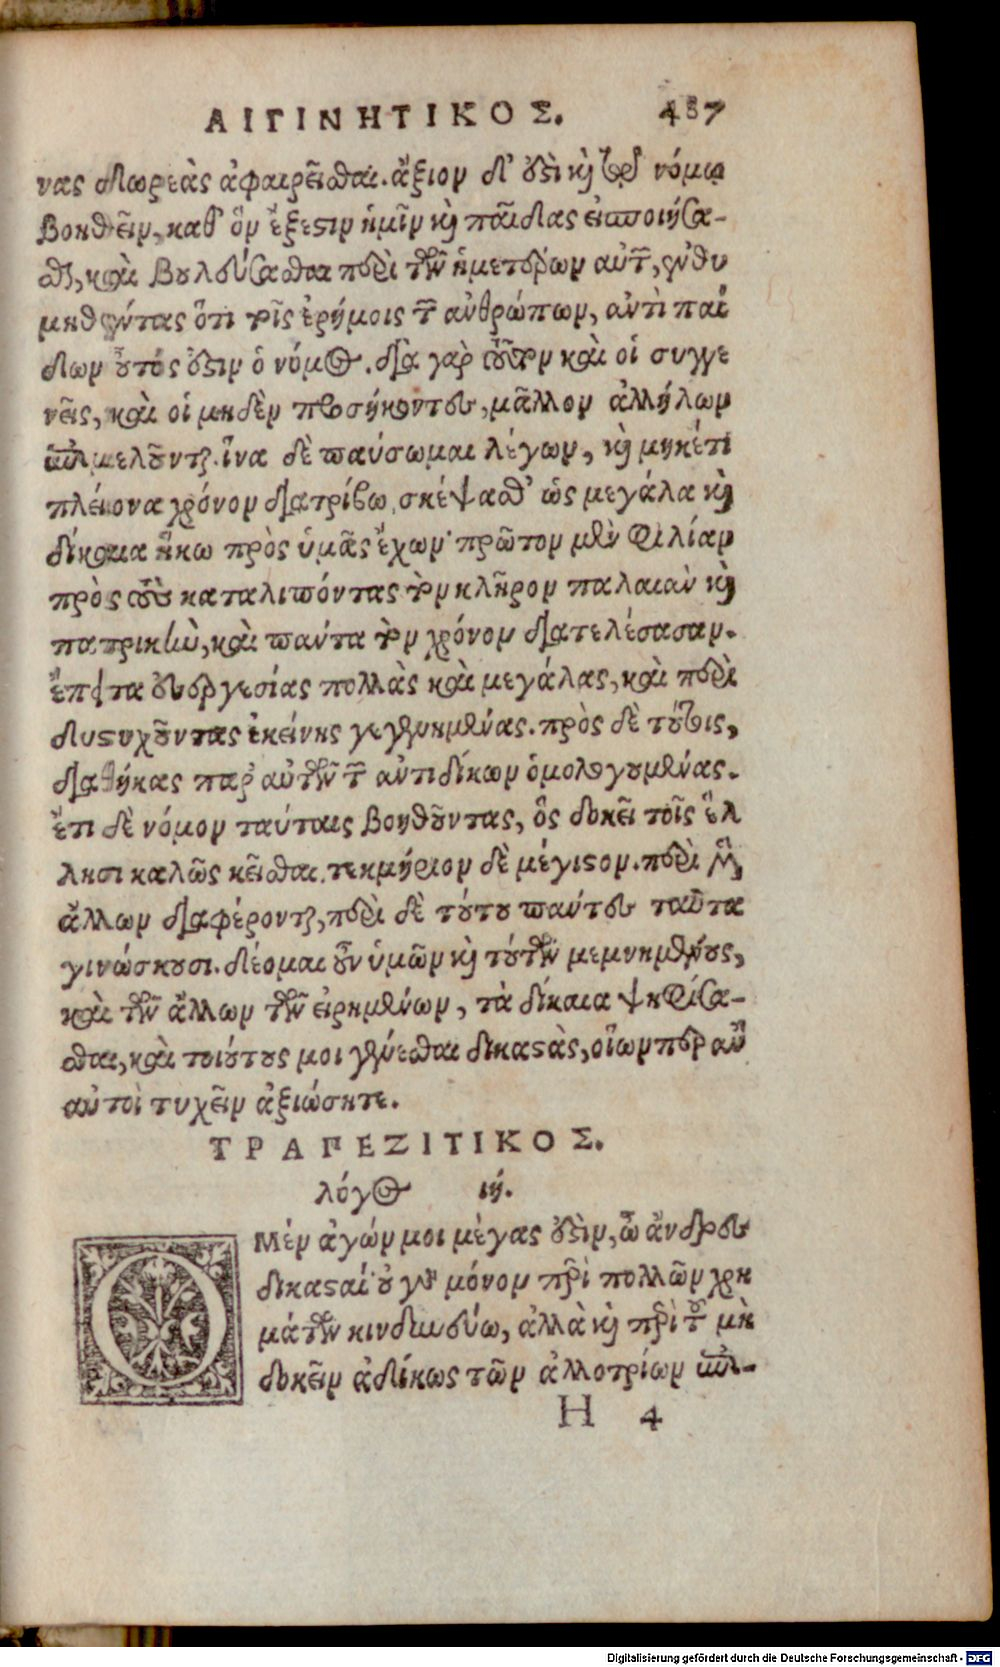 ΑΙΓΙΝΗΤΙΚΟΣ. 487
νας δωρεὰς ἀφαιρεῖσθαι. ἄξιον δ' ἐστὶ κὶ τῷ νόμῳ
βοηθεῖν, καθ' ὃν ἔξεστιν ἡμῖν κὶ παῖδας εἰσποιήσα-
σθαι, καὶ βουλεύσασθαι περὶ τῶν ἡμετέρων αὐτῶν, ἐνθυ
μηθέντας ὅτι τοῖς ἐρήμοις τῶν ἀνθρώπων, ἀντὶ παί
δων οὗτός ἐστιν ὁ νόμος. διὰ γὰρ τοῦτον καὶ οἱ συγγε
νεῖς, καὶ οἱ μηδὲν προσήκοντες, μᾶλλον ἀλλήλων
ἐπιμελοῦνται. ἵνα δὲ παύσωμαι λέγων, κὶ μηκέτι
πλείονα χρόνον διατρίβω, σκέψασθ' ὡς μεγάλα κὶ
δίκαια ἥκω πρὸς ὑμᾶς ἔχων· πρῶτον μὲν φιλίαν
πρὸς τοὺς καταλιπόντας τὸν κλῆρον παλαιὰν κὶ
πατρικὴν, καὶ πάντα τὸν χρόνον διατελέσασαν.
ἔπειτα εὐεργεσίας πολλὰς καὶ μεγάλας, καὶ περὶ
δυστυχοῦντας ἐκείνης γεγενημένας. πρὸς δὲ τούτοις,
διαθήκας παρ' αὐτῶν τῶν ἀντιδίκων ὁμολογουμένας.
ἔτι δὲ νόμον ταύταις βοηθοῦντας, ὃς δοκεῖ τοῖς ἕλ
λησι καλῶς κεῖσθαι. τεκμήριον δὲ μέγιστον. περὶ
ἄλλων διαφέρονται, περὶ δὲ τούτου πάντες ταῦτα
γινώσκουσι. δέομαι οὖν ὑμῶν κὶ τούτων μεμνημένους,
καὶ τῶν ἄλλων τῶν εἰρημένων, τὰ δίκαια ψηφίσα-
σθαι, καὶ τοιούτους μοι γενέσθαι δικαστὰς, οἵων περ ἂν
αὐτοὶ τυχεῖν ἀξιώσητε.
ΤΡΑΠΕΖΙΤΙΚΟΣ.
λόγος ιή.
Ὁ Μὲν ἀγών μοι μέγας ἐστὶν, ὦ ἄνδρες
δικασταί· οὐ γὰρ μόνον περὶ πολλῶν χρη
μάτων κινδυνεύω, ἀλλὰ κὶ περὶ τοῦ μὴ
δοκεῖν ἀδίκως τῶν ἀλλοτρίων ἐπι-
H 4
Digitalisierung gefördert durch die Deutsche Forschungsgemeinschaft - DFG